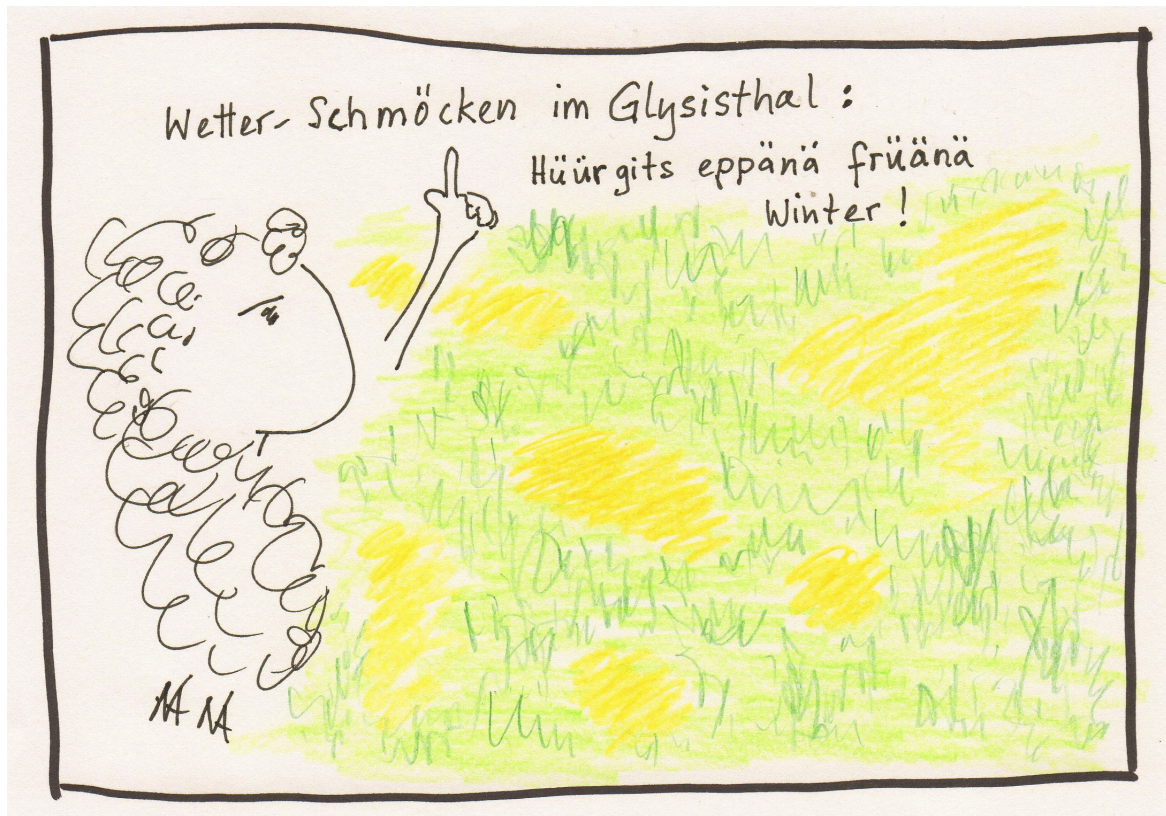 Wetter-Schmöcken im Glysisthal:
Hüür gits eppänä früänä
Winter!